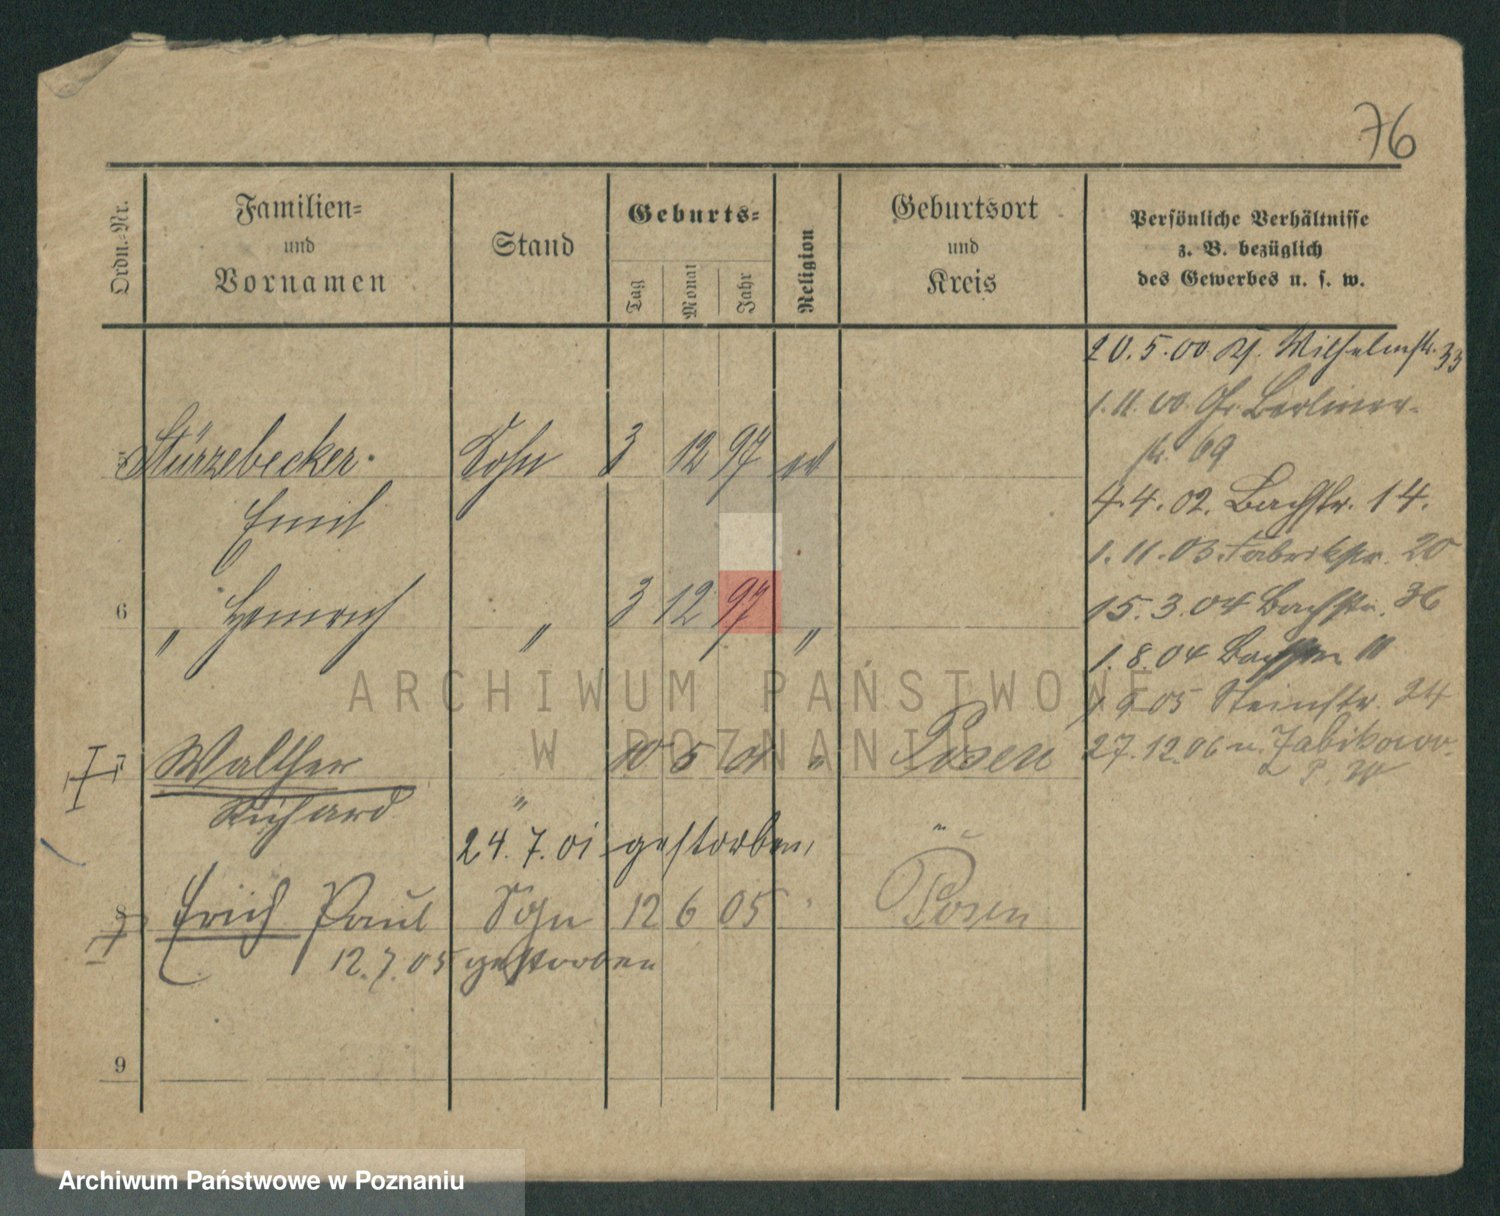 76
Ordn.-Nr.
Familien-
und
Vornamen
Stand
Geburts-
Tag
Monat
Jahr
Religion
Geburtsort
und
Kreis
Persönliche Verhältnisse
z. B. bezüglich
des Gewerbes u. s. w.
20.5.00 Wilhelmstr. 33
1.11.00 Gr. Berliner-
str. 69
5 Stürzebecker Sohn 3 12 97 ev
Emil
4.4.02. Bachstr. 14.
1.11.03 Fabrikstr. 20
6 " Heinrich " 3 12 97 "
15.3.04 Bachstr. 36
1.8.04
9.05 Steinstr. 24
7 Walther 10 5 01 " Posen
27.12.06 n. Zabikowo
Richard "
24.7.01 gestorben,
8 Erich Paul Sohn 12 6 05 " Posen
12.7.05 gestorben
9
ARCHIWUM PAŃSTWOWE
W POZNANIU
Archiwum Państwowe w Poznaniu